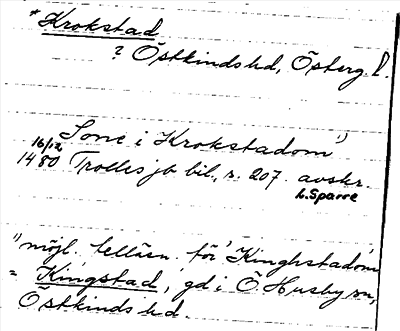 *Krokstad
? Östkinds hd, Österg. l.
Sone i Krokstadom¹⁾
16/12 1480 Trolles jb bil., s. 207. avskr.
L. Sparre
¹⁾ möjl. felläsn. för Kinghstadom
= Kingstad, gd i Ö. Husby sn,
Östkinds hd.